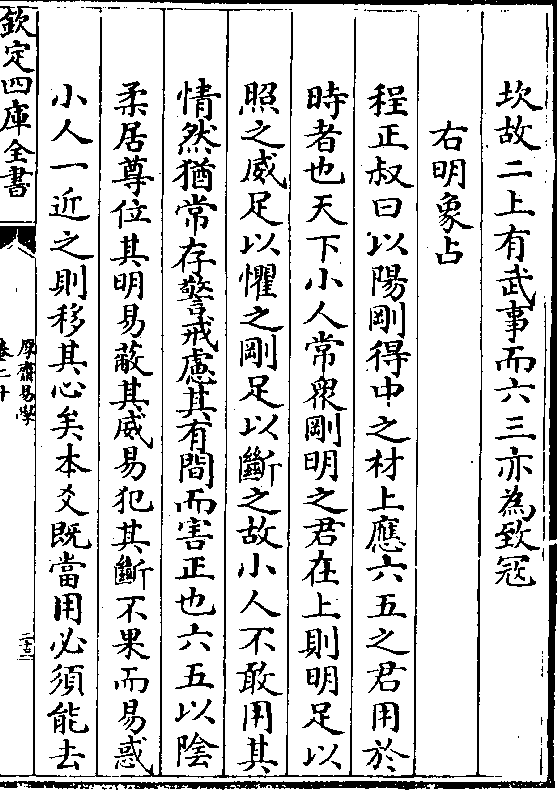 坎故二上有武事而六三亦為致冦
右明象占
程正叔曰以陽剛得中之材上應六五之君用於
時者也天下小人常衆剛明之君在上則明足以
照之威足以懼之剛足以斷之故小人不敢用其
情然猶常存警戒慮其有間而害正也六五以陰
柔居尊位其明易蔽其威易犯其斷不果而易惑
小人一近之則移其心矣本爻既當用必須能去
欽定四庫全書
厚齋易學
卷二十
二十三